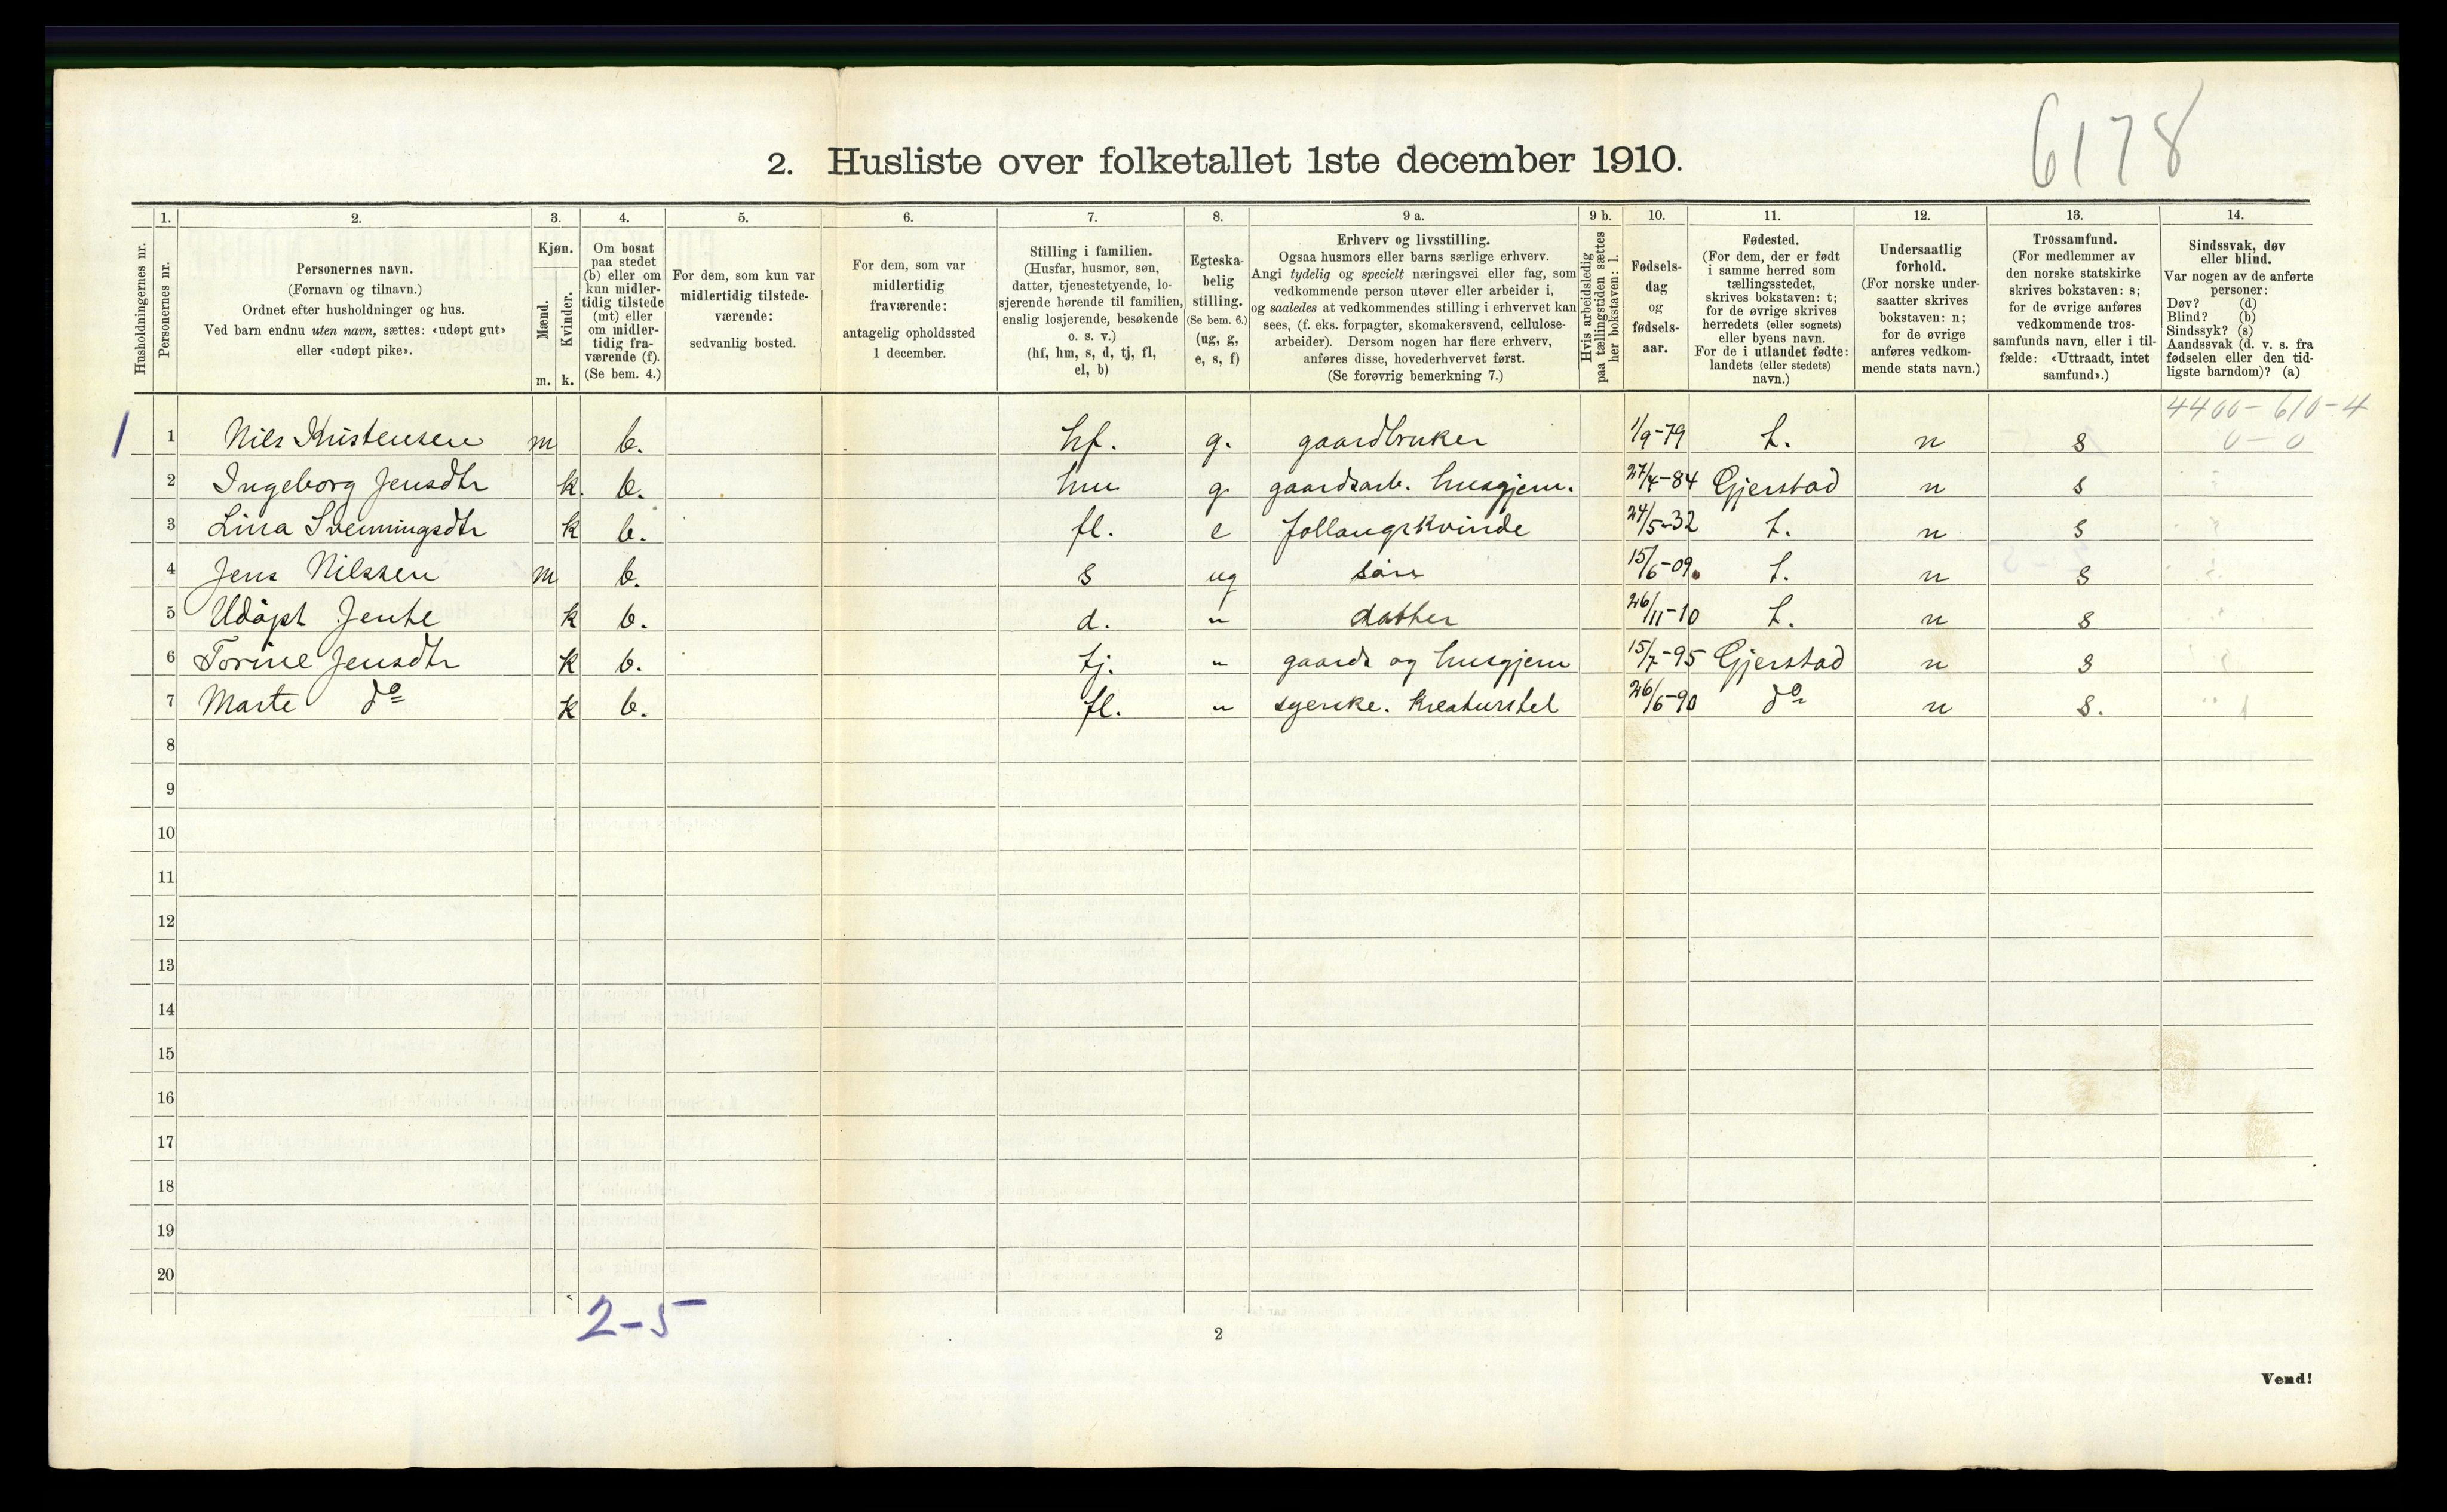 6178
2. Husliste over folketallet 1ste december 1910.
1. 2. 3. 4. 5. 6. 7. 8. 9 a. 9 b. 10. 11. 12. 13. 14.
Husholdningernes nr.
Personernes nr.
Personernes navn.
(Fornavn og tilnavn.)
Ordnet efter husholdninger og hus.
Ved barn endnu uten navn, sættes: «udøpt gut»
eller «udøpt pike».
Kjøn.
Mænd.
Kvinder.
m. k.
Om bosat
paa stedet
(b) eller om
kun midler-
tidig tilstede
(mt) eller
om midler-
tidig fra-
værende (f).
(Se bem. 4.)
For dem, som kun var
midlertidig tilstede-
værende:
sedvanlig bosted.
For dem, som var
midlertidig
fraværende:
antagelig opholdssted
1 december.
Stilling i familien.
(Husfar, husmor, søn,
datter, tjenestetyende, lo-
sjerende hørende til familien,
enslig losjerende, besøkende
o. s. v.)
(hf, hm, s, d, tj, fl,
el, b)
Egteska-
belig
stilling.
(Se bem. 6.)
(ug, g,
e, s, f)
Erhverv og livsstilling.
Ogsaa husmors eller barns særlige erhverv.
Angi tydelig og specielt næringsvei eller fag, som
vedkommende person utøver eller arbeider i,
og saaledes at vedkommendes stilling i erhvervet kan
sees, (f. eks. forpagter, skomakersvend, cellulose-
arbeider). Dersom nogen har flere erhverv,
anføres disse, hovederhvervet først.
(Se forøvrig bemerkning 7.)
Hvis arbeidsledig
paa tællingstiden sættes
her bokstaven: l.
Fødsels-
dag
og
fødsels-
aar.
Fødested.
(For dem, der er født
i samme herred som
tællingsstedet,
skrives bokstaven: t;
for de øvrige skrives
herredets (eller sognets)
eller byens navn.
For de i utlandet fødte:
landets (eller stedets)
navn.)
Undersaatlig
forhold.
(For norske under-
saatter skrives
bokstaven: n;
for de øvrige
anføres vedkom-
mende stats navn.)
Trossamfund.
(For medlemmer av
den norske statskirke
skrives bokstaven: s;
for de øvrige anføres
vedkommende tros-
samfunds navn, eller i til-
fælde: «Uttraadt, intet
samfund».)
Sindssvak, døv
eller blind.
Var nogen av de anførte
personer:
Døv? (d)
Blind? (b)
Sindssyk? (s)
Aandssvak (d. v. s. fra
fødselen eller den tid-
ligste barndom)? (a)
4400-610-4
0-0
1 1 Nils Kristensen m b. hf. g. gaardbruker 1/9-79 t. n s
2 Ingeborg Jensdtr k. b. hm g. gaardsarb. husgjern. 27/4-84 Gjerstad n s
3 Lina Svenningsdtr k b. fl. e follaugskvinde 24/5-32 t. n s
4 Jens Nilssen m b. s ug søn 15/6-09. t. n s
5 Udøpt Jente k b. d. " datter 26/11-10 t. n s
6 Torine Jensdtr k b. tj. " gaards og husgjern 15/7-95 Gjerstad n s
7 Marte do k b. fl. " syerske. kreaturstel 26/6-90 do n s.
8
9
10
11
12
13
14
15
16
17
18
19
20
2-5
2
Vend!